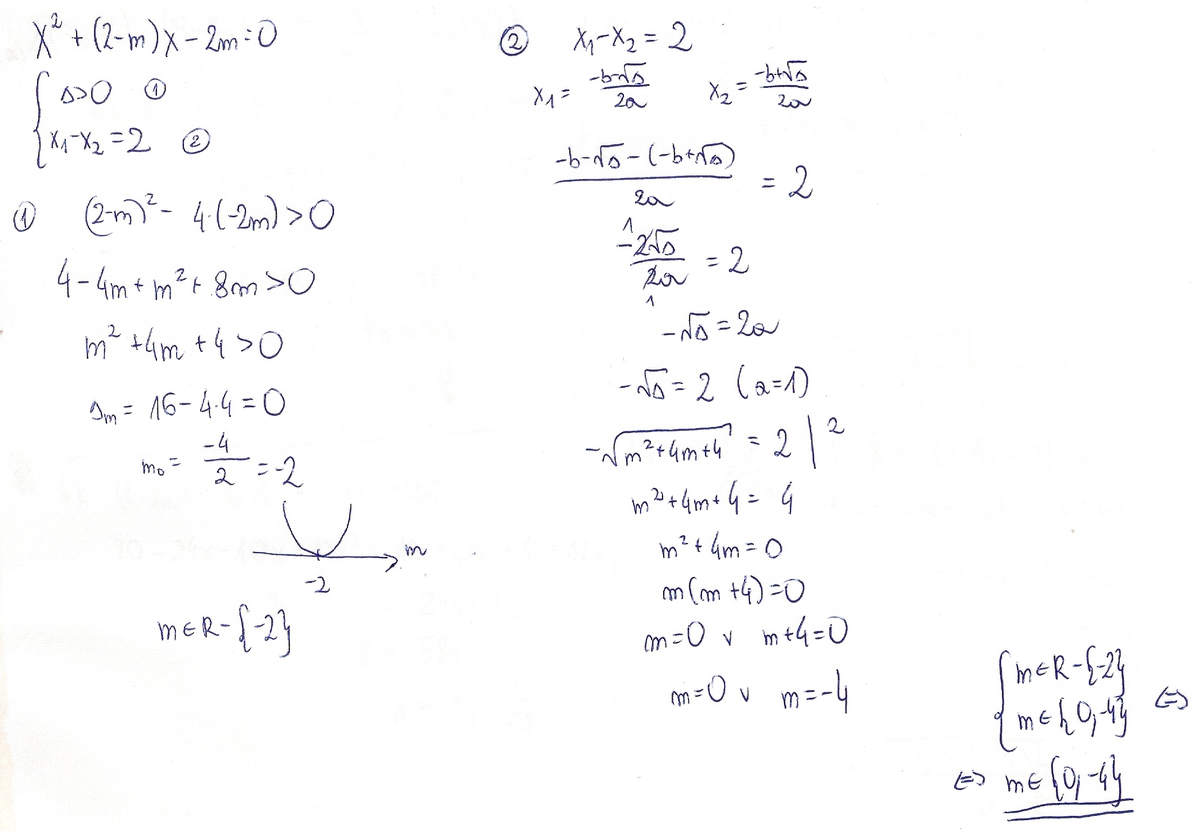 x² + (2-m)x - 2m = 0
{ Δ>0 ①
x₁-x₂ = 2 ②
① (2-m)² - 4·(-2m) > 0
4 - 4m + m² + 8m > 0
m² + 4m + 4 > 0
Δm = 16 - 4·4 = 0
m₀ = -4/2 = -2
m
-2
m∈R-{-2}
② x₁-x₂ = 2
x₁ = (-b-√Δ)/2a x₂ = (-b+√Δ)/2a
(-b-√Δ-(-b+√Δ))/2a = 2
1
-2√Δ/2a = 2
1
-√Δ = 2a
-√Δ = 2 (a=1)
-√(m²+4m+4) = 2 |²
m²+4m+4 = 4
m²+4m = 0
m(m+4)=0
m=0 ∨ m+4=0
m=0 ∨ m=-4
{ m∈R-{-2}
m∈{0,-4} ⇔
⇔ m∈{0,-4}